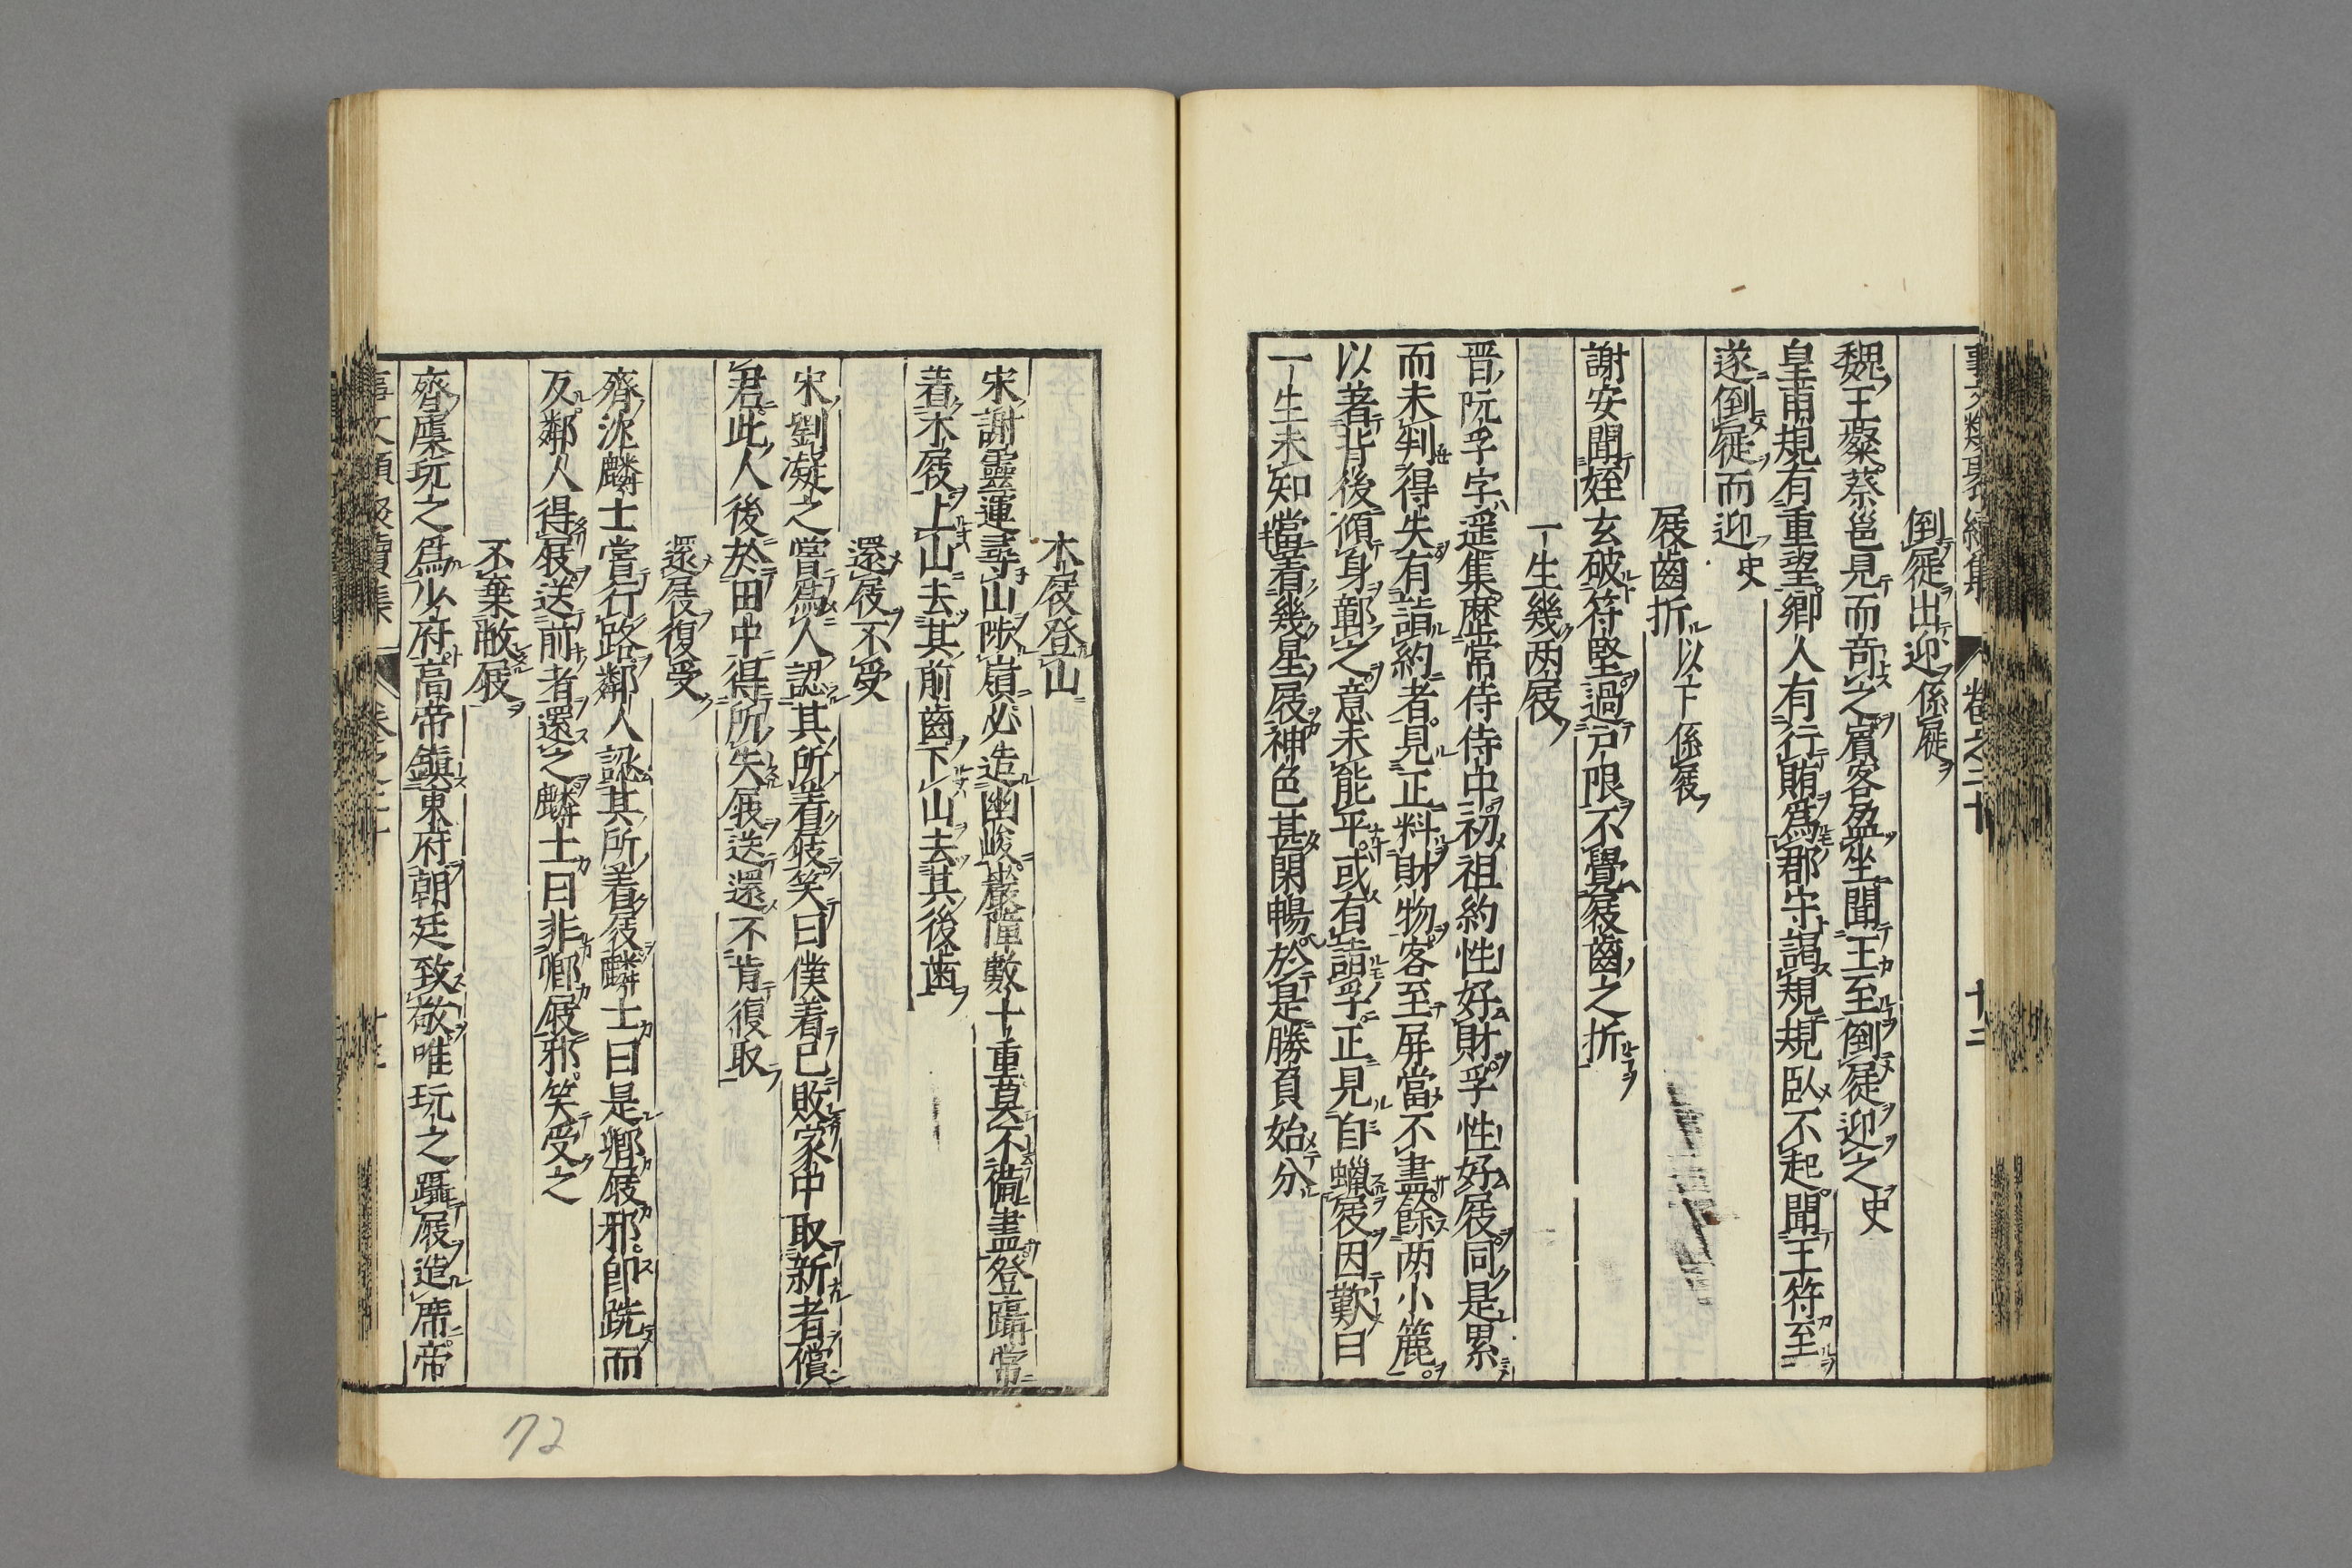 事文類聚續集 卷之二十 十二
倒屣出迎係屣
魏王粲蔡邕見而奇之賓客盈坐聞王至倒屣迎之史
皇甫規有重望鄉人有行賄爲郡守謁規規臥不起聞王符至
遂倒屣而迎史
屐齒折以下係屐
謝安聞姪玄破符堅過戶限不覺屐齒之折
一生幾两屐
晋阮孚字遥集歷常侍侍中初祖約性好財孚性好屐同是累
而未判得失有詣約者見正料財物客至屏當不盡餘两小簏
以著背後傾身鄣之意未能平或有詣孚正見自蠟屐因歎曰
一生未知當着幾量屐神色甚閑暢於是勝負始分
木屐登山
宋謝靈運尋山陟嶺必造幽峻巖障數十重莫不備盡登躡常
着木屐上山去其前齒下山去其後齒
還屐不受
宋劉凝之嘗爲人認其所着屐笑曰僕着已敗家中取新者償
君此人後於田中得所失屐送還不肯復取
還屐復受
齊沈麟士嘗行路鄰人認其所着屐麟士曰是卿屐邪卽跣而
反鄰人得屐送前者還之麟士曰非卿屐邪笑受之
不棄敝屐
齊虞玩之爲少府高帝鎮東府朝廷致敬唯玩之躡屐造席帝
事文類聚續集 卷之二十 十三
72